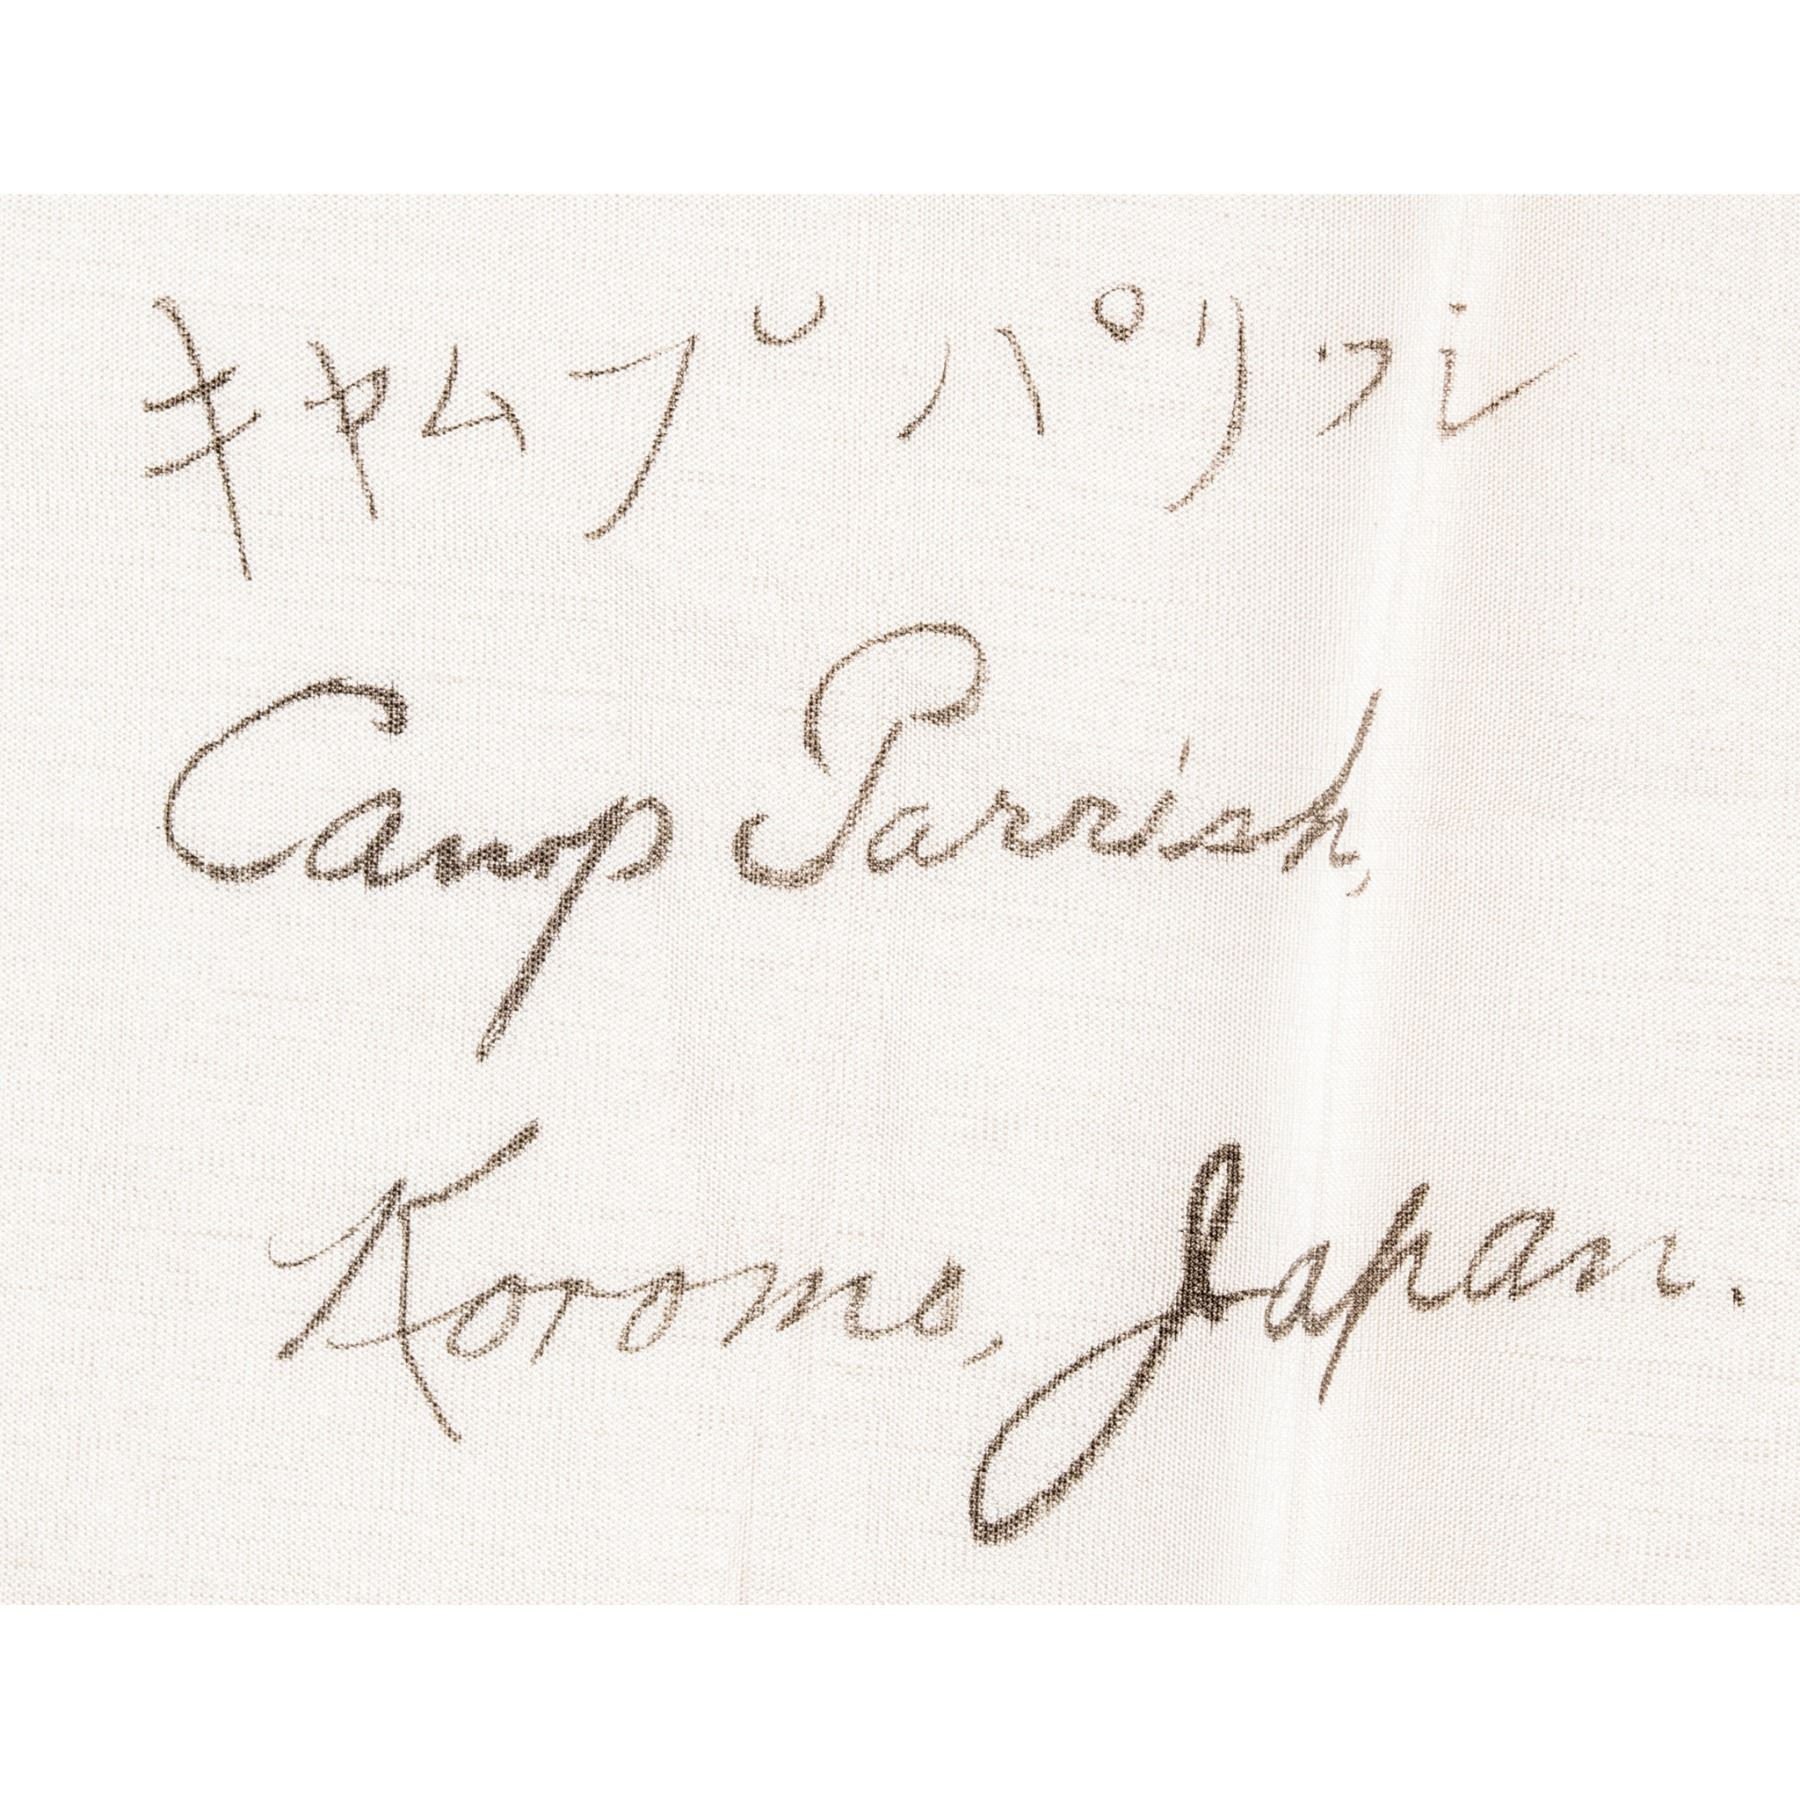 キャムプパリッシ
Camp Parrish,
Koromo, Japan.